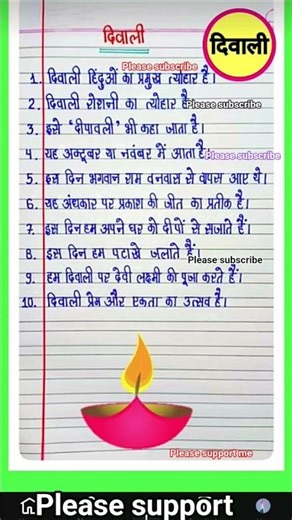 दिवाली
दिवाली
Please subscribe
1. दिवाली हिंदुओं का प्रमुख त्योहार है।
2. दिवाली रोशनी का त्योहार है।
Please subscribe
3. इसे 'दीपावली' भी कहा जाता है।
4. यह अक्टूबर या नवंबर में आता है।
Please subscribe
5. इस दिन भगवान राम वनवास से वापस आए थे।
6. यह अंधकार पर प्रकाश की जीत का प्रतीक है।
7. इस दिन हम अपने घर को दीपों से सजाते हैं।
8. इस दिन हम पटाखे जलाते हैं।
Please subscribe
9. हम दिवाली पर देवी लक्ष्मी की पूजा करते हैं।
10. दिवाली प्रेम और एकता का उत्सव है।
Please support me
Please support